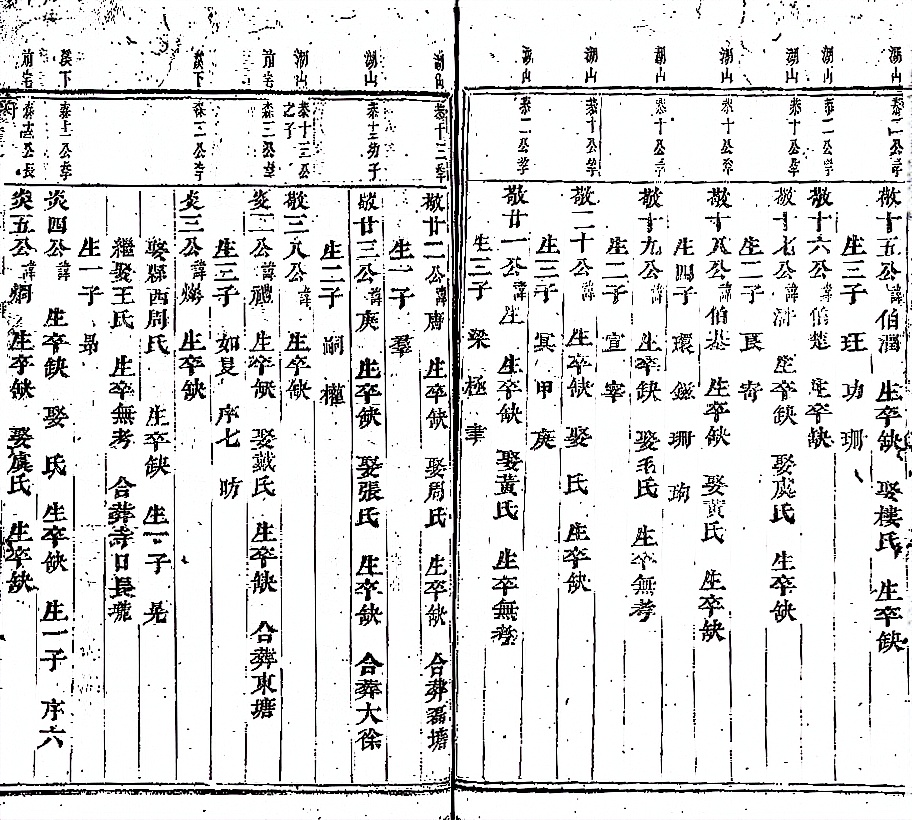 湖山 恭二公子 敬十五公諱伯 生卒缺 娶樓氏 生卒缺
生三子 玨 功 珊
湖山 恭二公子 敬十六公諱伯 生卒缺
湖山 恭十公子 敬十七公諱 生卒缺 娶虞氏 生卒缺
生二子 寄
湖山 恭十公子 敬十八公諱伯 生卒缺 娶黃氏 生卒缺
生四子 環 珊
湖山 恭十公子 敬十九公 生卒缺 娶毛氏 生卒無考
生二子 宣 宰
湖山 恭十公子 敬二十公 生卒缺 娶 氏 生卒缺
生三子 甲
湖山 恭二公子 敬廿一公諱 生卒缺 娶黃氏 生卒無考
生三子 梁 極 聿
湖山 恭十三子 敬廿二公諱 生卒缺 娶周氏 生卒缺 合葬磊塘
生一子 羣
湖山 恭十三幼子 敬廿三公諱庚 生卒缺 娶張氏 生卒缺 合葬大徐
生二子 嗣 權
湖山 恭十三公之子 敬三八公諱 生卒缺
前宅 森三公子 炎二公諱禮 生卒缺 娶戴氏 生卒缺 合葬東塘
生三子 序七 昉
後下 森二公子 炎三公諱 生卒缺
娶縣西周氏 生卒缺 生一子 晃
繼娶王氏 生卒無考 合葬寺口長壠
生一子 昂
後下 森上公子 炎四公諱 生卒缺 娶 氏 生卒缺 生一子 序六
前宅 炎五公諱炯 生卒缺 娶虞氏 生卒缺